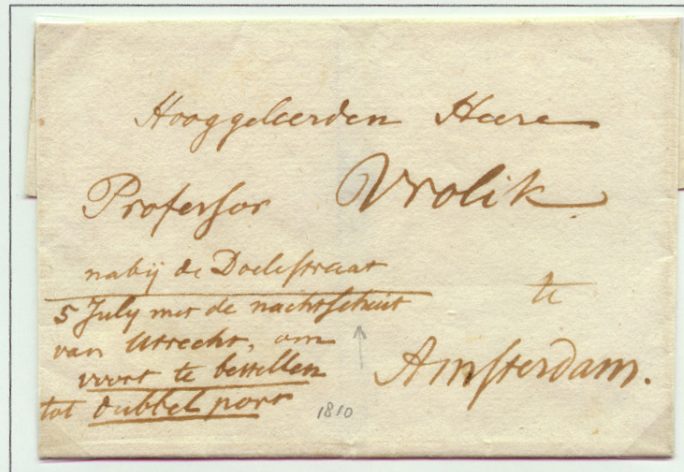 Hooggeleerden Heere
Professor Vrolik
nabij de Doelestraat
te
5 July met de nachtschuit
van Utrecht, om
voort te bestellen
tot dubbel port
Amsterdam.
1810